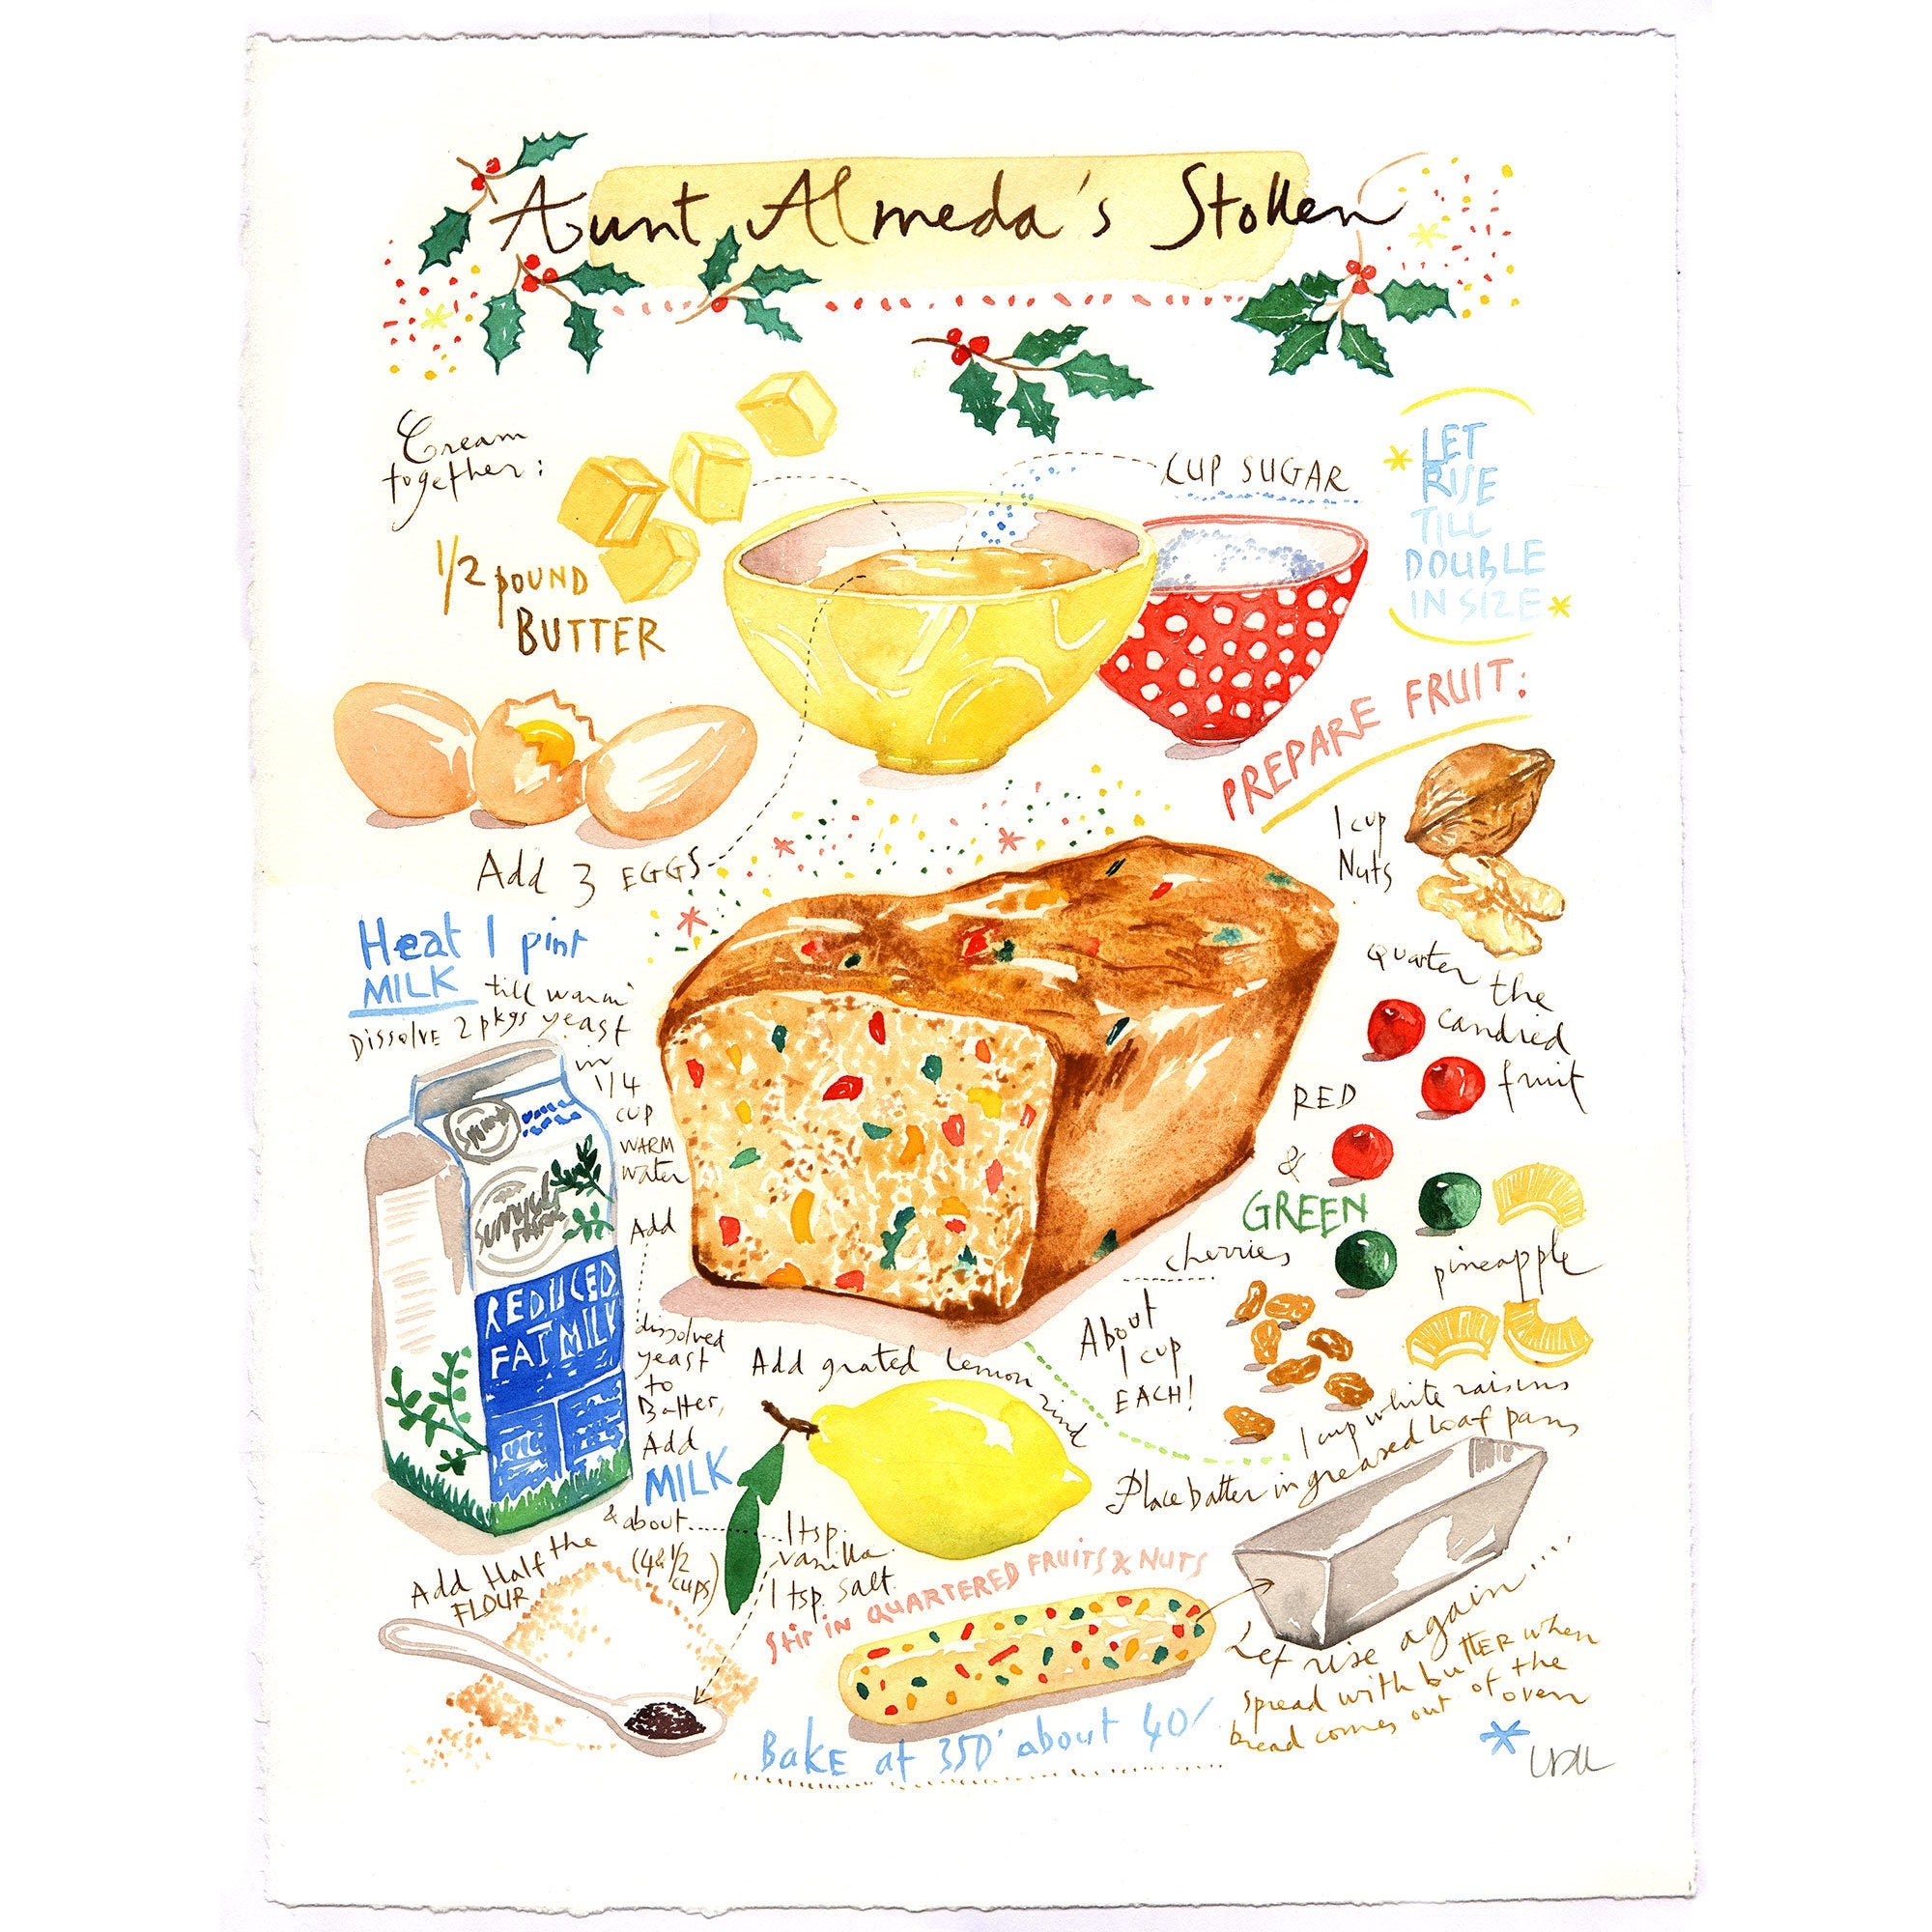 Aunt Almeda's Stollen
Cream
together:
1/2 pound
BUTTER
CUP SUGAR
LET
RISE
TILL
DOUBLE
IN SIZE
Add 3 EGGS
PREPARE FRUIT:
1 cup
Nuts
quarter the
candied
fruit
RED
&
GREEN
cherries
pineapple
About
1 cup
EACH!
1 cup white raisins
Heat 1 pint
MILK till warm
Dissolve 2 pkgs yeast
in
1/4
cup
WARM
water
Add
dissolved
yeast
to
Batter,
Add
MILK
& about
(4&1/2
cups)
REDUCED
FAT MILK
Add grated lemon rind
1 tsp.
vanilla
1 tsp. salt.
Add Half the
FLOUR
Stir in QUARTERED FRUITS & NUTS
Place batter in greased loaf pans
Let rise again
Spread with butter when
bread comes out of the
oven
Bake at 350° about 40'